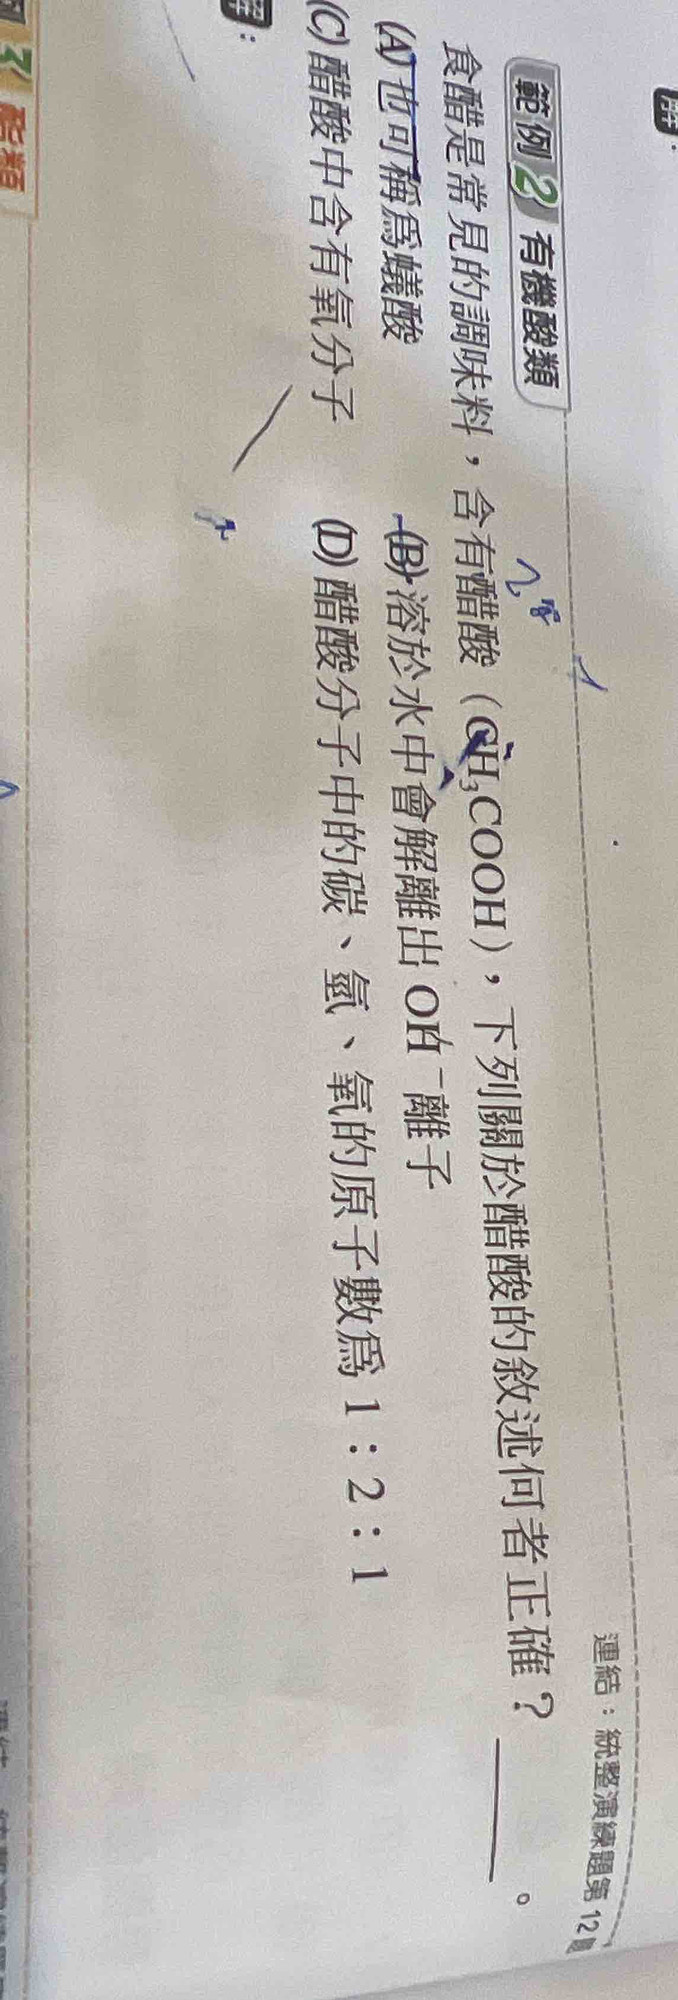 範例2 有機酸類
連結：統整演練題第 12 題
食醋是常見的調味料，含有醋酸（CH₃COOH），下列關於醋酸的敘述何者正確？______。
(A) 也可稱爲蟻酸 (B) 溶於水中會解離出 OH⁻離子
(C) 醋酸中含有氧分子 (D) 醋酸分子中的碳、氫、氧的原子數爲 1：2：1
解：
3 酯類